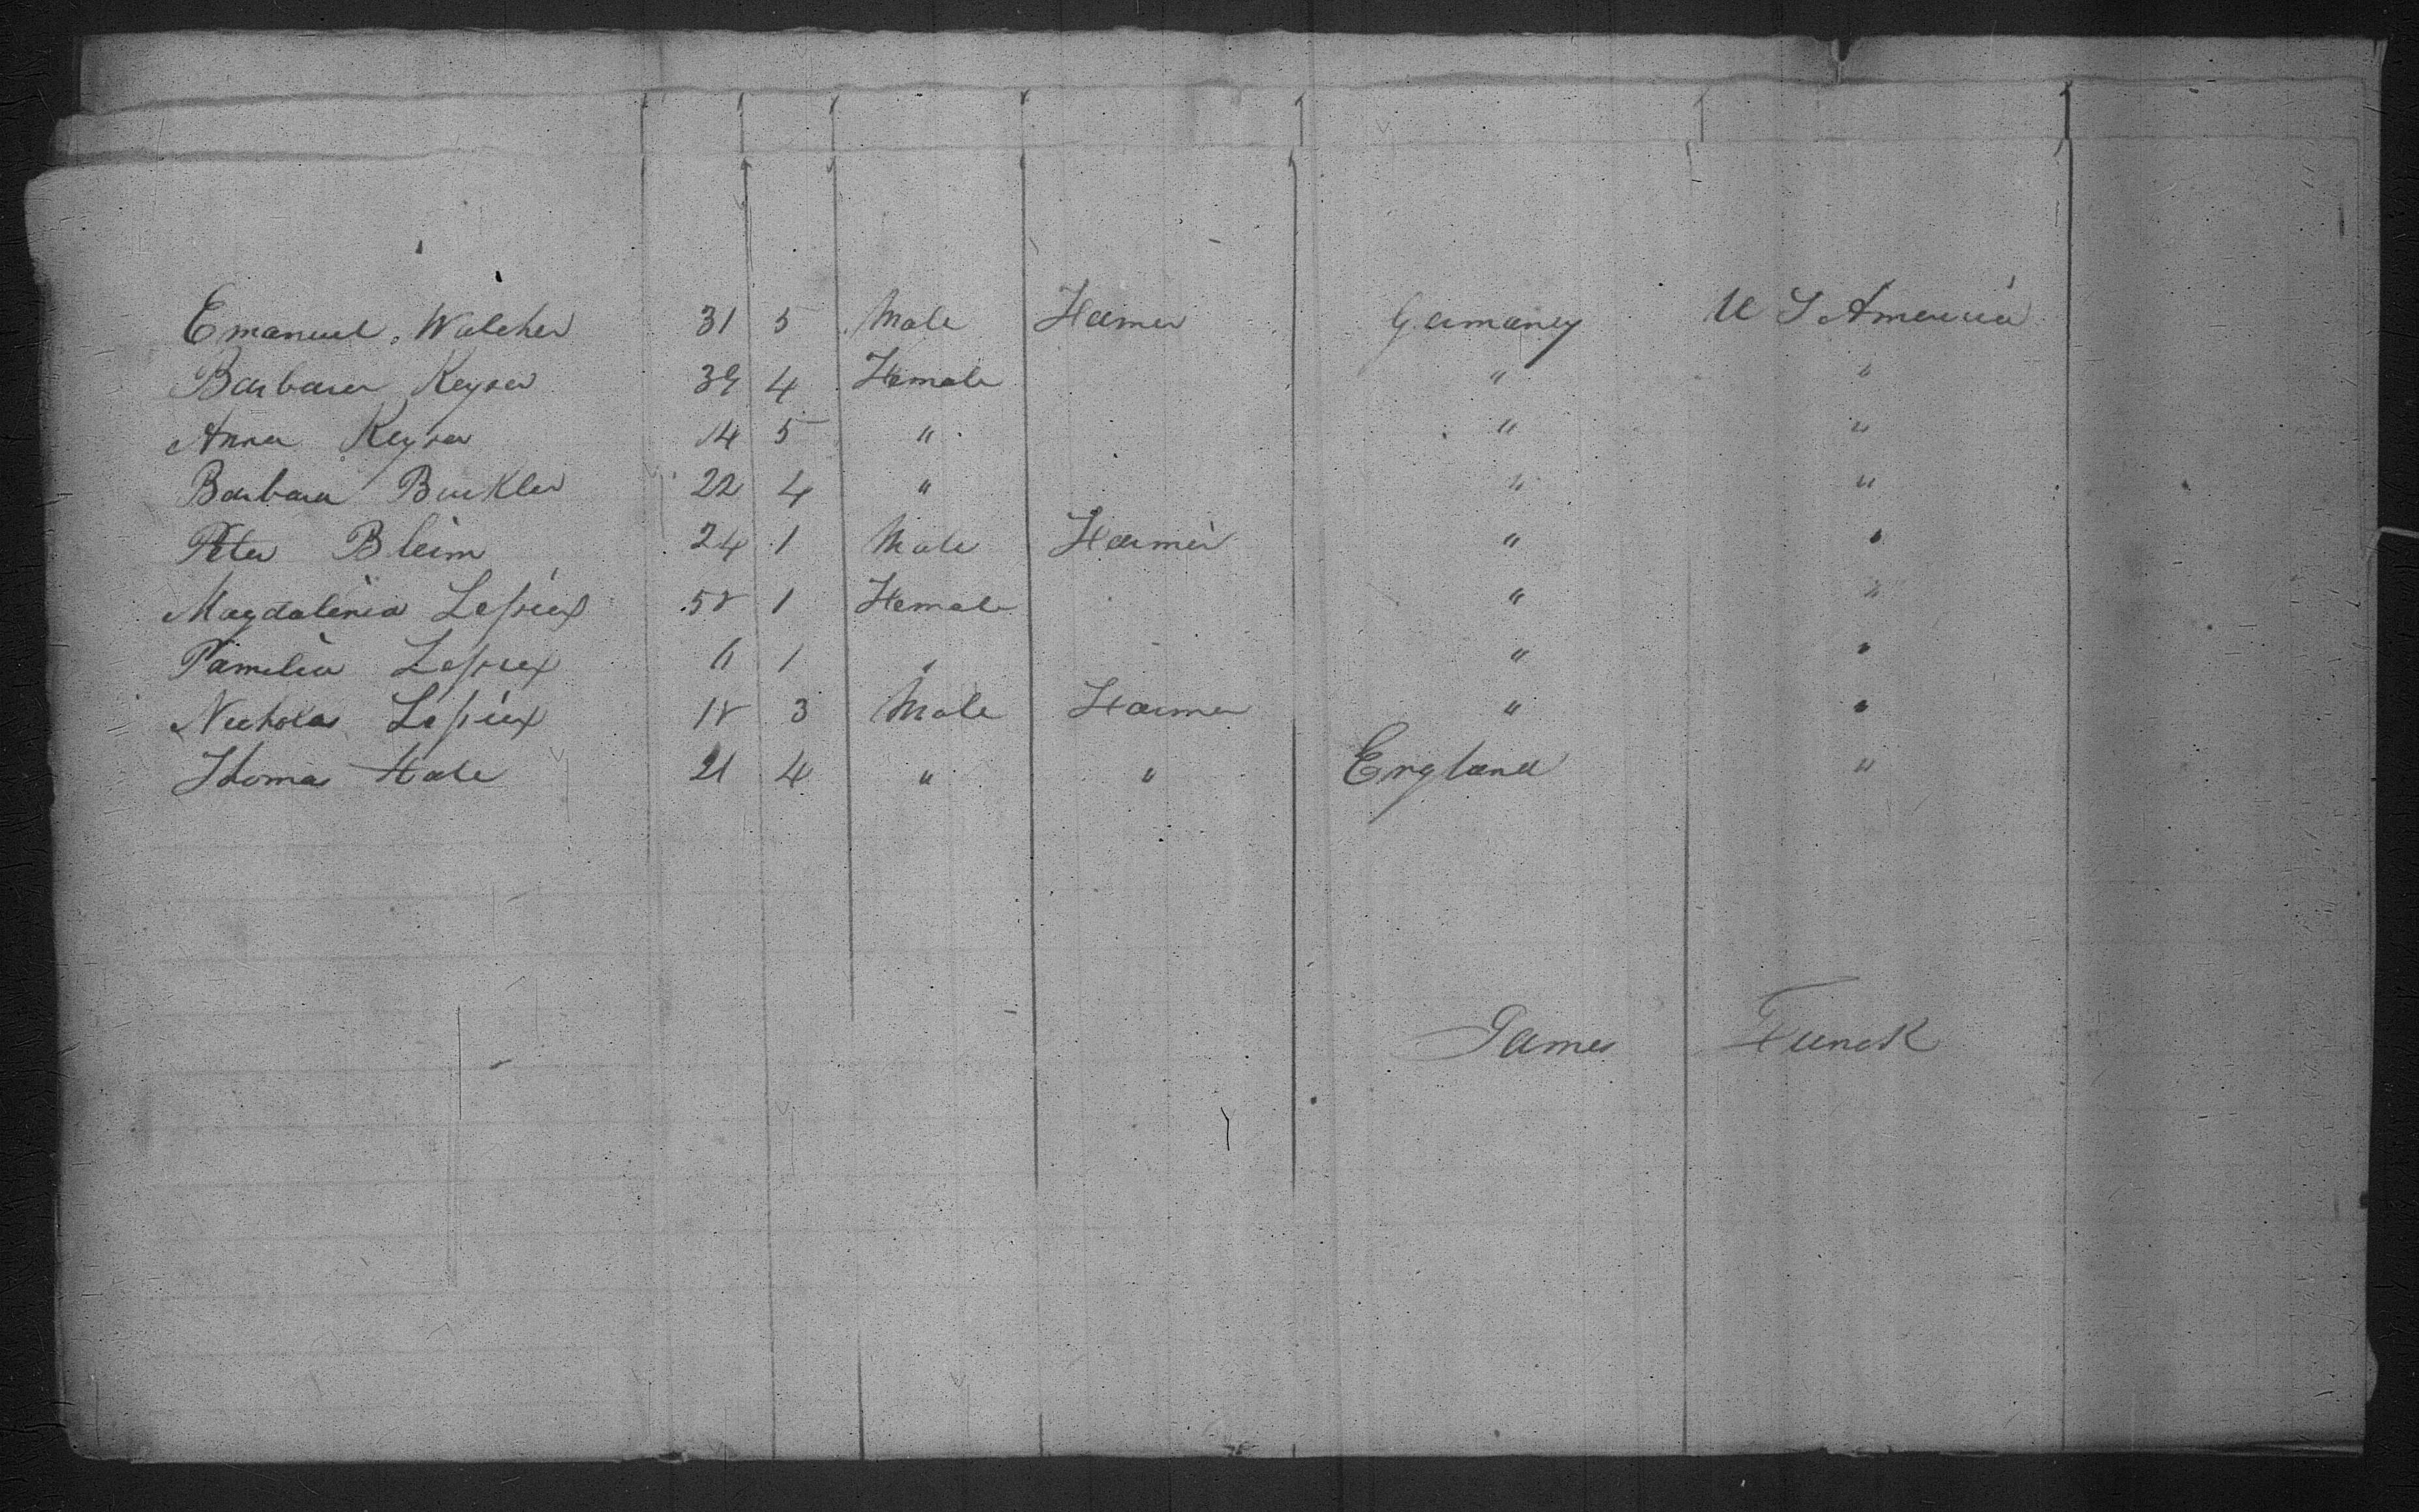 Emanuel Walcher 31 5 Male Farmer Germany U S America
Barbara Keyser 39 4 Female " "
Anna Keyser 14 5 " " "
Barbara Buckler 22 4 " " "
Peter Bleim 24 1 Male Farmer " "
Magdalinia Lepieux 58 1 Female " "
Pamelia Lepieux 11 1 " " "
Nicholas Lepieux 18 3 Male Farmer " "
Thomas Hale 21 4 " " England "
James Funck